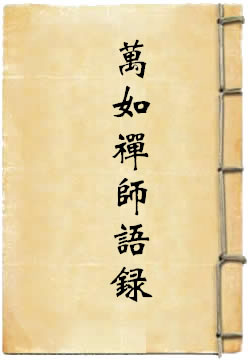 萬如禪師語録